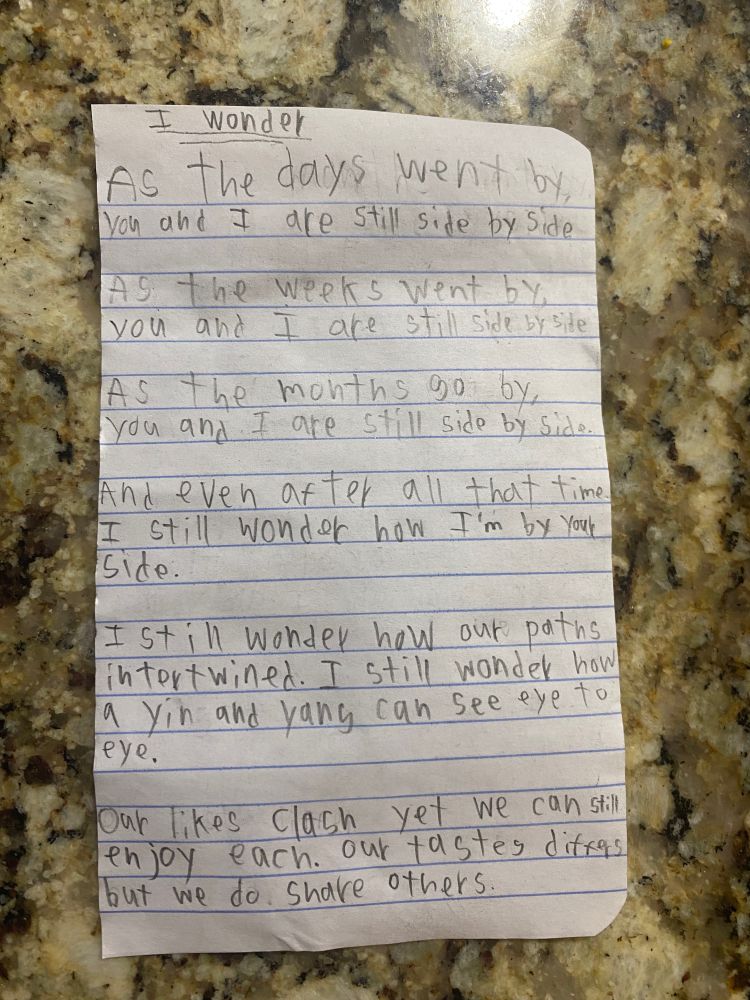 I wonder
As the days went by,
you and I are still side by side
As the weeks went by,
you and I are still side by side
As the months go by,
you and I are still side by side.
And even after all that time
I still wonder how I'm by your
side.
I still wonder how our paths
intertwined. I still wonder how
a yin and yang can see eye to
eye.
Our likes clash yet we can still
enjoy each. our tastes differs
but we do share others.